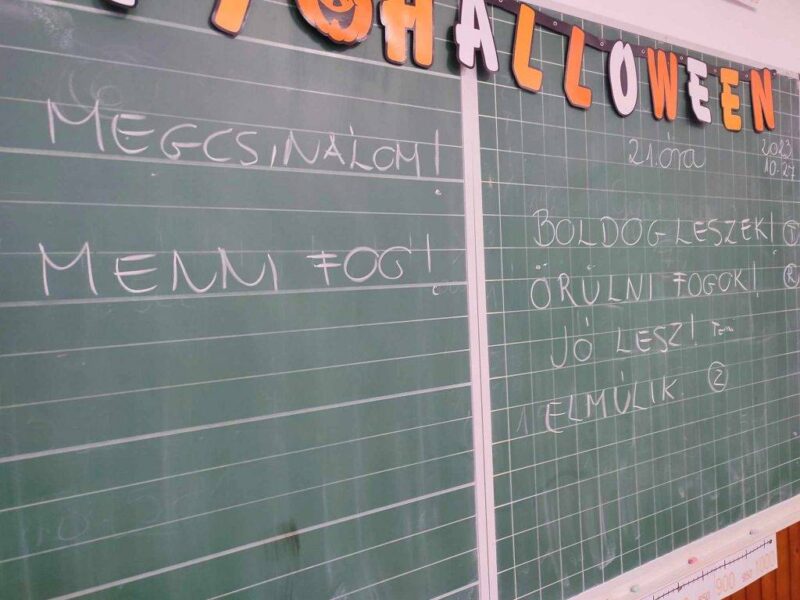 HALLOWEEN
MEGCSINÁLOM!
MENNI FOG!
21. óra
2023
10.27
BOLDOG LESZEK!
ÖRÜLNI FOGOK!
JÓ LESZ!
ELMÚLIK 2
900
950
1000